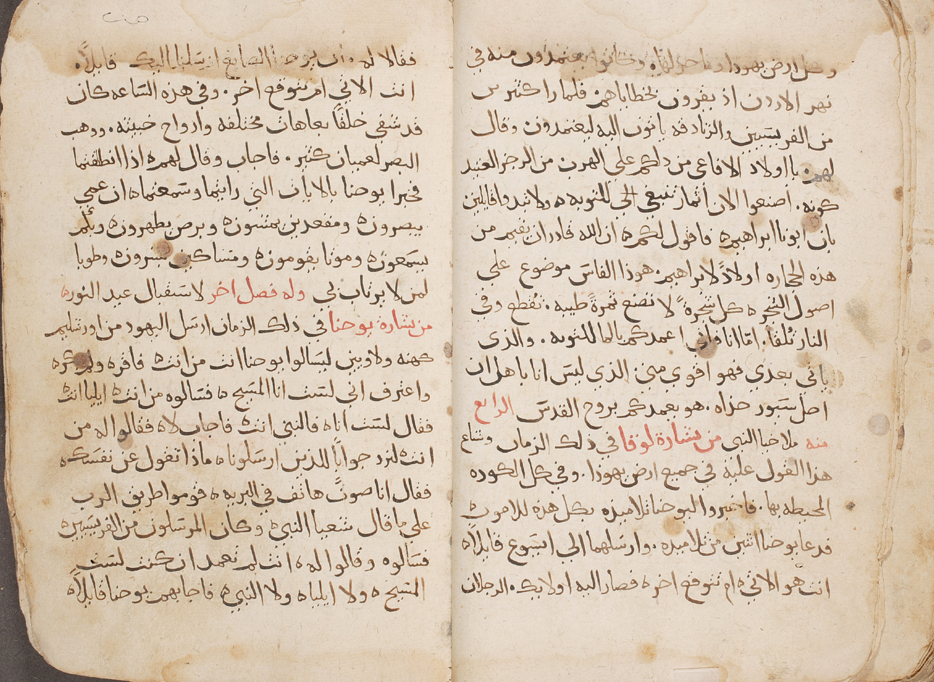 وكل ارض يهودا وكانوا يعتمدون منه في
نهر الاردن اذ يقرون بخطاياهم فلما را كثير
من الفريسيين والزنادقه ياتون اليه ليعتمدون وقال
لهم يا اولاد الافاعي من دلكم علي الهرب من الرجز العتيد
كونه اصنعوا الان اثمار تنبغي للتوبه ولا تبدوا قايلين
بان ابونا ابراهيم فاقول لكم ان الله قادر ان يقيم من
هذه الحجاره اولاد لابراهيم هوذا الفاس موضوع علي
اصول الشجره كل شجرة لا تصنع ثمرة طيبه تقطع وفي
النار تلقا اما انا فاني اعمدكم بالما للتوبه والذي
ياتي بعدي فهو اقوي مني الذي ليس انا باهل ان
احل سيور حذاه هو يعمدكم بروح القدس الرابع
منه ملاخيا النبي من بشارة لوقا في ذلك الزمان وشاع
هذا القول عليه في جميع ارض يهوذا وفي كل الكوره
المحيطه بها فاخبروا ليوحنا تلاميذه بكل هذه الامور
فدعا يوحنا اثنين من تلاميذه وارسلهما الي ايسوع قايلاه
انت هو الاتي ام نتوقع اخر فصار اليه اولايك الرجلان
فقالا له ان يوحنا الصابغ ارسلنا اليك قايلا
انت الاتي ام نتوقع اخر وفي هذه الساعه كان
قد شفي خلقا بعاهات مختلفه وارواح خبيثه ووهب
البصر لعميان كثير فاجاب وقال لهم اذا انطلقتما
فخبرا يوحنا بالايات التي رايتما وسمعتماه ان عمي
يبصرون ومقعدين يمشون وبرص يطهرون
يسمعون وموتا يقومون ومساكين يبشرون وطوبا
لمن لا يرتاب بي وله فصل اخر لاستقبال عيد النور
من بشارة يوحنا في ذلك الزمان ارسل اليهود من اورشليم
كهنه ولاويين ليسالوا يوحنا انت من انت فاقر ولم ينكره
واعترف اني لست انا المسيح فسالوه من انت ايليا انت
فقال لست اناه فالنبي انت فاجاب لاه فقالوا له من
انت لنرد جوابا للذين ارسلوناه ماذا تقول عن نفسك
فقال انا صوت هاتف في البريه قوموا طريق الرب
علي ما قال شعيا النبي وكان المرسلون من الفريسيين
فسالوه وقالوا له انت لم تعمد ان كنت لست
المسيح ولا ايلياه ولا النبي فاجابهم يوحنا قايلاه